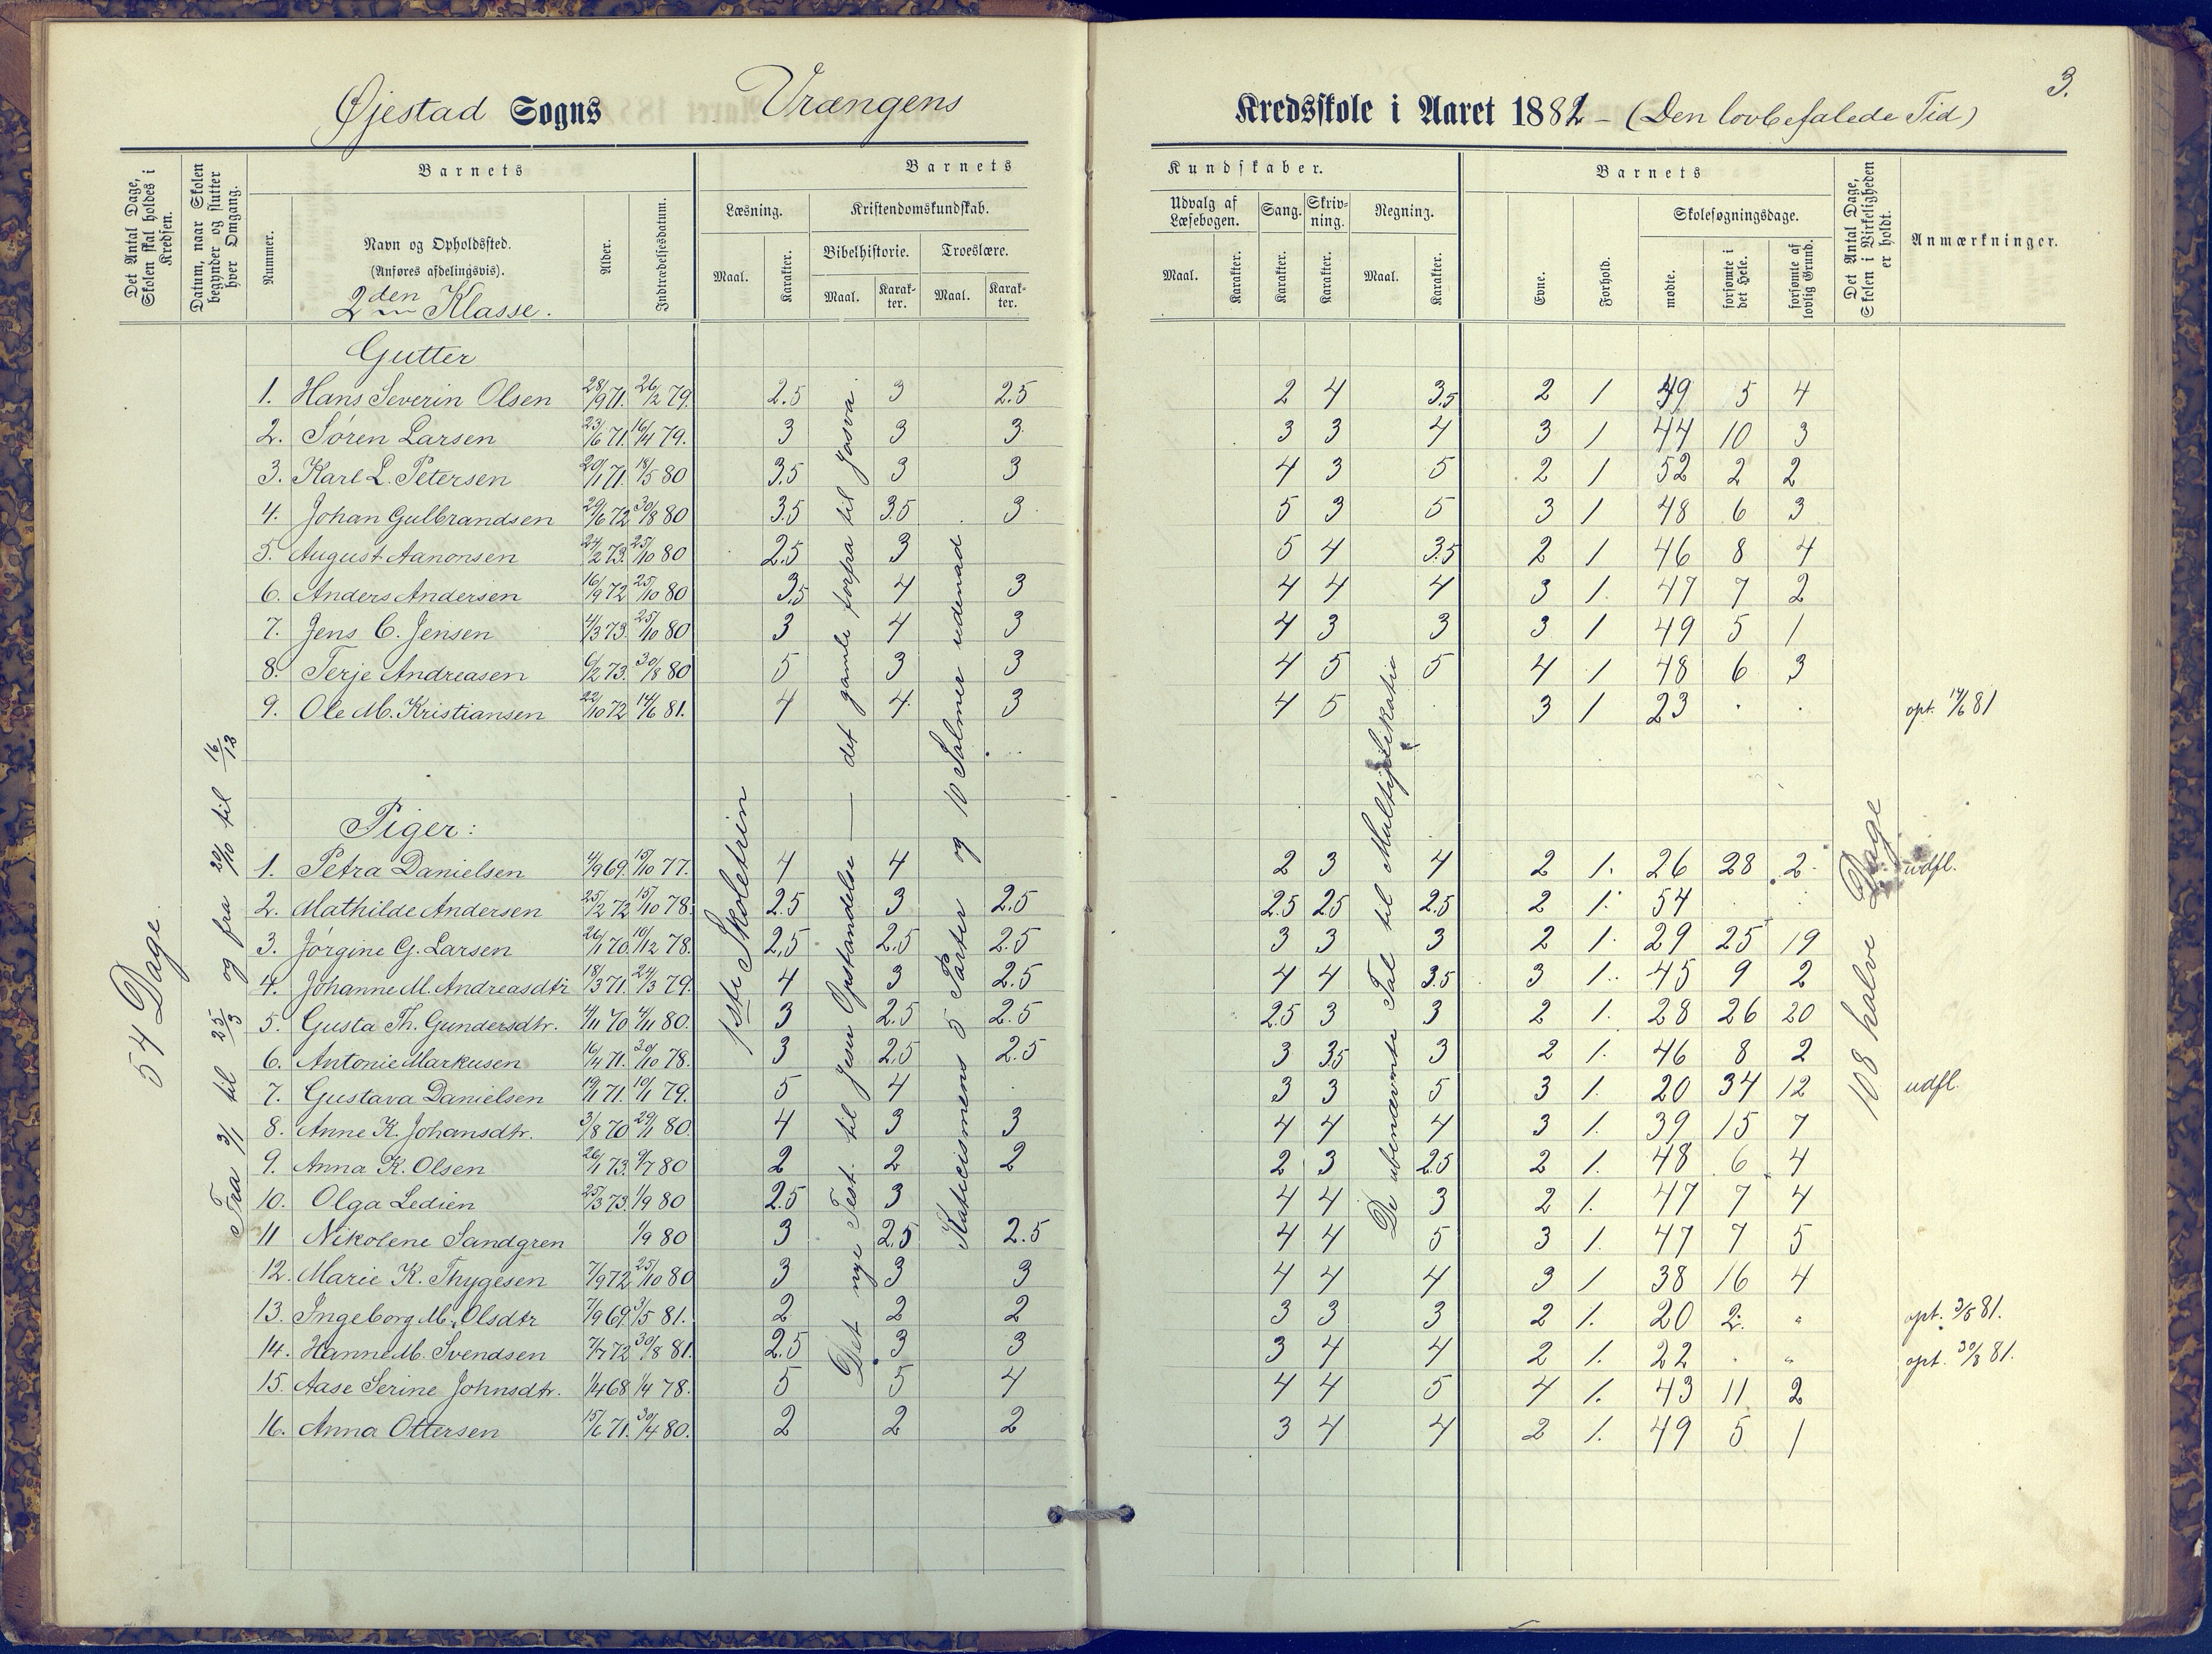 3.
Øjestad Sogns Vrængens Kredsskole i Aaret 1881 - (Den lovbefalede Tid)
Det Antal Dage, Skolen skal holdes i Kredsen.
Datum, naar Skolen begynder og slutter hver Omgang.
Barnets
Nummer.
Navn og Opholdssted.
(Anføres afdelingsvis).
2den Klasse.
Alder.
Indtrædelsesdatum.
Barnets Kundskaber.
Læsning.
Maal.
Karakter.
Kristendomskundskab.
Bibelhistorie.
Maal.
Karakter.
Troeslære.
Maal.
Karakter.
Udvalg af Læsebogen.
Maal.
Karakter.
Sang.
Karakter.
Skrivning.
Karakter.
Regning.
Maal.
Karakter.
Barnets
Evne.
Forhold.
Skolesøgningsdage.
mødte.
forsømte i det Hele.
forsømte af lovlig Grund.
Det Antal Dage, Skolen i Virkeligheden er holdt.
Anmærkninger.
54 Dage.
Fra 3/1 til 25/3 og fra 20/10 til 16/13
1ste Skoletrin
Det nye Test. til Jesu Opstandelse — det gamle forfra til Josva.
Katecismens 5 Parter og 10 Salmer udenad
De ubenævnte Tal til Multiplikation
108 halve Dage
Gutter
1. Hans Severin Olsen 28/9 71. 26/2 79. 2.5 3 2.5 2 4 3.5 2 1 49 5 4
2. Søren Larsen 23/6 71. 16/4 79. 3 3 3 3 3 4 3 1 44 10 3
3. Karl L. Petersen 20/1 71. 18/5 80 3.5 3 3 4 3 5 2 1 52 2 2
4. Johan Gulbrandsen 29/6 72 30/8 80 3.5 3.5 3 5 3 5 3 1 48 6 3
5. August Aanonsen 24/2 73. 25/10 80 2.5 3 5 4 3.5 2 1 46 8 4
6. Anders Andersen 16/9 72 25/10 80 3.5 4 3 4 4 4 3 1. 47 7 2
7. Jens C. Jensen 4/3 73. 25/10 80 3 4 3 4 3 3 3 1 49 5 1
8. Terje Andreasen 6/2 73. 30/8 80 5 3 3 4 5 5 4 1 48 6 3
9. Ole M. Kristiansen 22/10 72 14/6 81. 4 4 3 4 5 3 1 23 opt. 14/6 81
Piger:
1. Petra Danielsen 4/9 69. 15/10 77. 4 4 2 3 4 2 1. 26 28 2 udfl.
2. Mathilde Andersen 25/2 72 15/10 78. 2.5 3 2.5 2.5 2.5 2.5 2 1. 54
3. Jørgine G. Larsen 26/1 70. 10/12 78. 2,5 2.5 2.5 3 3 3 2 1. 29 25 19
4. Johanne M. Andreasdtr 18/3 71. 24/3 79. 4 3 2.5 4 4 3.5 3 1. 45 9 2
5. Gusta Th. Gundersdtr. 4/11 70 4/11 80. 3 2.5 2.5 2.5 3 3 2 1. 28 26 20
6. Antonie Markusen 16/4 71. 30/10 78. 3 2,5 2.5 3 3.5 3 2 1. 46 8 2
7. Gustava Danielsen 19/1 71. 10/1 79. 5 4 3 3 5 3 1. 20 34 12 udfl.
8. Anne K. Johansdtr. 3/8 70 29/1 80. 4 3 3 4 4 4 3 1. 39 15 7
9. Anna K. Olsen 26/1 73. 9/7 80 2 2 2 2 3 2.5 2 1. 48 6 4
10. Olga Ledien 25/3 73. 1/9 80 2.5 3 4 4 3 2 1. 47 7 4
11 Nikolene Sandgren 1/9 80 3 2,5 2.5 4 4 5 3 1. 47 7 5
12. Marie K. Thygesen 7/9 72 25/10 80 3 3 3 4 4 4 3 1 38 16 4
13. Ingeborg M. Olsdtr 7/9 69. 3/5 81. 2 2 2 3 3 3 2 1. 20 2. opt. 3/5 81.
14. Hanne M. Svendsen 7/7 72 30/8 81. 2.5 3 3 3 4 4 2 1. 22 opt. 30/8 81.
15. Aase Serine Johnsdtr. 1/4 68. 1/4 78. 5 5 4 4 4 5 4 1. 43 11 2
16. Anna Ottersen 15/6 71. 30/4 80. 2 2 2 3 4 4 2 1. 49 5 1